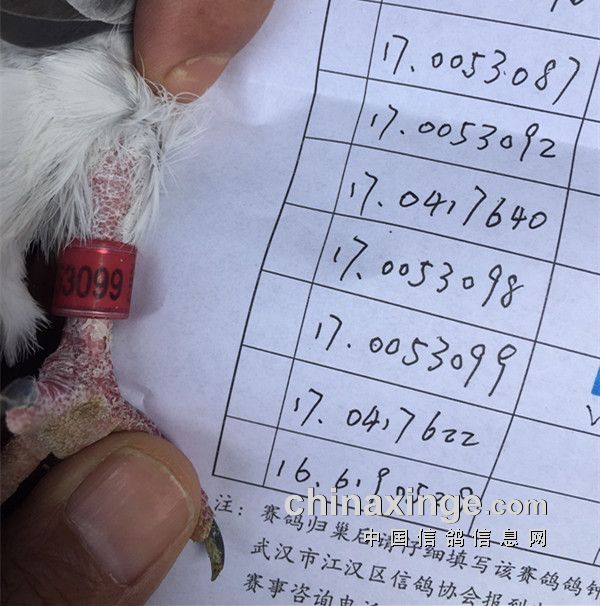 17.0053087
17.0053092
17.0417640
17.0053098
53099
17.0053099
17.0417622
16.6190528
注: 赛鸽归巢后请仔细填写该赛鸽鸽钟
武汉市江汉区信鸽协会报到
赛事咨询电
chinaxinge.com
中国信鸽信息网